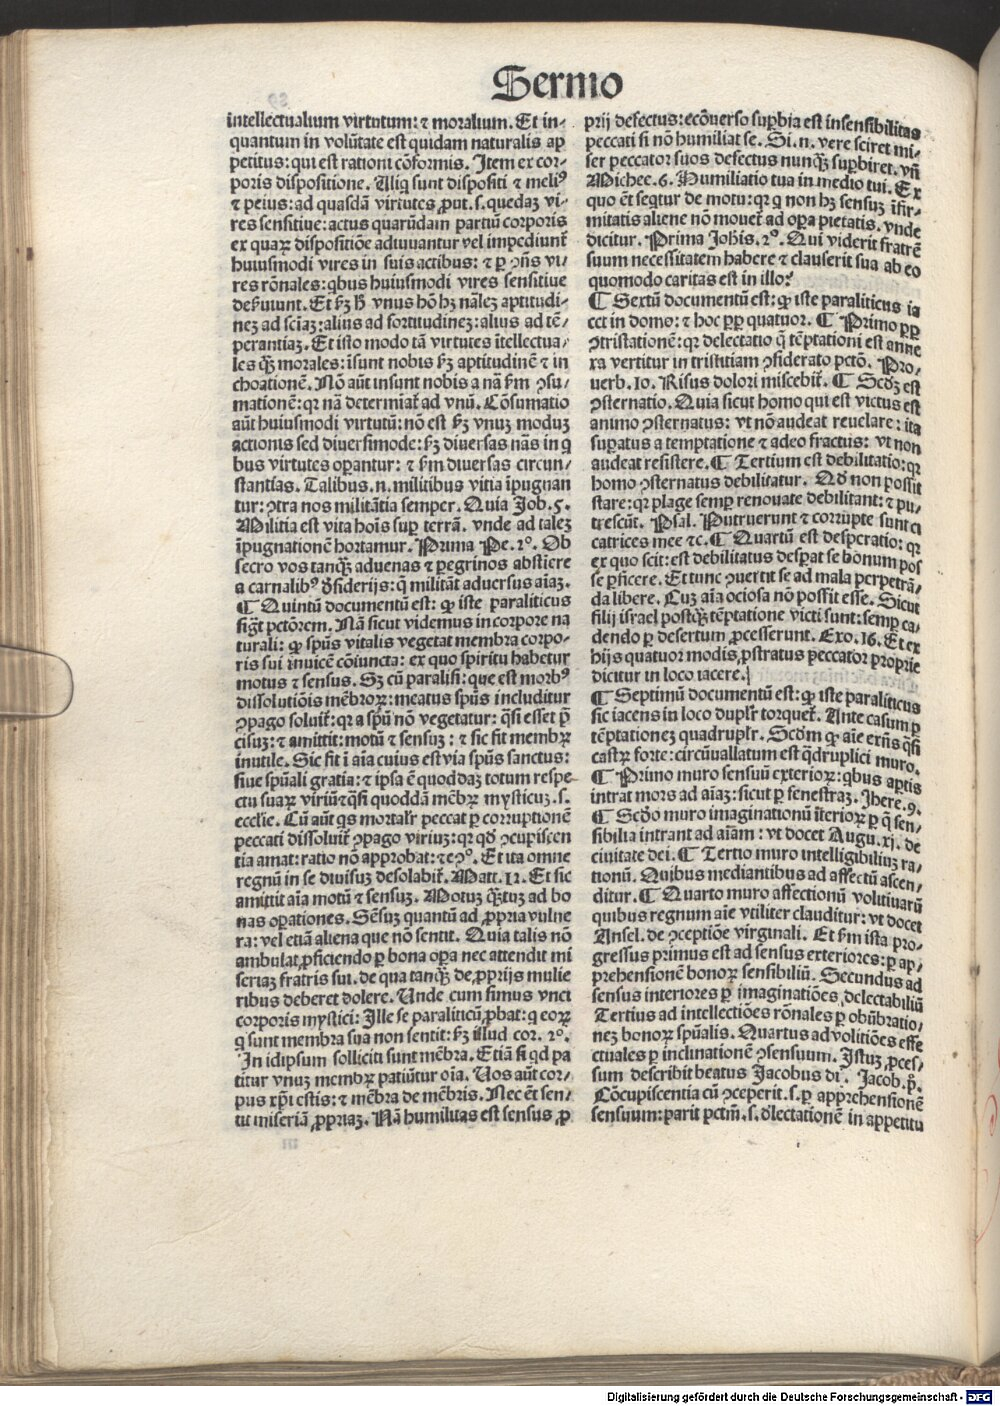 Sermo
intellectualium virtutum: ⁊ moralium. Et in-
quantum in volūtate est quidam naturalis ap
petitus: qui est rationi cōformis. Item ex cor-
poris dispositione. Aliq̄ sunt dispositi ⁊ meliꝰ
⁊ peius: ad quasdā virtutes ꝓut .s. quedaꝫ vi-
res sensitiue: actus quarūdam partiū corporis
ex quaꝝ dispositiōe adiuuantur vel impediunt̄
huiusmodi vires in suis actibus: ⁊ ꝑ ꝯn̄s vi-
res rōnales: qͥbus huiusmodi vires sensitiue
deſ̄uiunt. Et ſ̄ꝫ h̄ vnus hō hꝫ nāleꝫ aptitudi-
neꝫ ad sciaꝫ: alius ad fortitudineꝫ: alius ad tē-
perantiaꝫ. Et isto modo tā virtutes ītellectua-
les qꝫ̄ morales: īsunt nobis ſ̄ꝫ aptitudinē ⁊ in
choationē. Nō aūt insunt nobis a nā ſ̄m ꝯsu-
mationē: qꝛ nā determiāt̄ ad vnū. Cōsumatio
aūt huiusmodi virtutū: nō est ſ̄ꝫ vnuꝫ moduꝫ
actionis sed diuersimode: ſ̄ꝫ diuersas nās in qͥ
bus virtutes oꝑantur: ⁊ ſ̄m diuersas circun-
stantias. Talibus .n. militibus vitia īpugnan
tur: ꝯtra nos militātia semper. Quia Job .5.
Militia est vita hoīs suꝑ terrā. vnde ad taleꝫ
īpugnationē hortamur. Prima Pe. 2º. Ob
secro vos tanqꝫ̄ aduenas ⁊ ꝑegrinos abstiere
a carnalibꝰ d̄siderijs: q̄ militāt aduersus aīaꝫ.
¶ Quintū documentū est: ꝙ iste paraliticus
sigt̄ pctōrem. Nā sicut videmus in corpore na
turali: ꝙ spūs vitalis vegetat membra corpo-
ris sui inuicē cōiuncta: ex quo spiritu habetur
motus ⁊ sensus. Sꝫ cū paralisi: que est morbꝰ
dissolutiōis mēbroꝝ: meatus spūs includitur
ꝯpago soluit̄: qꝛ a spū nō vegetatur: qͣsi esset p̄
cisuꝫ: ⁊ amittit: motū ⁊ sensuꝫ: ⁊ sic fit membꝝ
inutile. Sic fit ī aīa cuius est via spūs sanctus:
siue spūali gratia: ⁊ ipsa ē quoddaꝫ totum respe-
ctu suaꝝ viriū ⁊ qͣsi quoddā mēbꝝ mysticuꝫ .s.
ecclīe. Cū aūt qͥs mortalr̄ peccat ꝑ corruptionē
peccati dissoluit̄ ꝯpago viriuꝫ: qꝛ qd̄ ꝯcupiscen
tia amat: ratio nō approbat: ⁊ eꝯº. Et ita omne
regnū in se diuisuꝫ desolabit̄. Matt. 12. Et sic
amittit aīa motū ⁊ sensuꝫ. Motuꝫ qꝫ̄tuꝫ ad bo
nas oꝑationes. Sēsuꝫ quantū ad ꝓpria vulne
ra: vel etiā aliena que nō sentit. Quia talis nō
ambulat ꝓficiendo ꝑ bona oꝑa nec attendit mi
seriaꝫ fratris sui. de qua tanqꝫ̄ de ꝓprijs mulie
ribus deberet dolere. Unde cum simus vnci
corporis mystici: Ille se paraliticū ꝓbat: qͥ eoꝝ
qͥ sunt membra sua non sentit: ſ̄ꝫ illud cor. 2º.
In idipsum solliciti sunt mēbra. Etiā si qͥd pa
titur vnuꝫ membꝝ patiūtur oīa. Uos aūt cor-
pus xp̄i estis: ⁊ mēbra de mēbris. Nec ēt sen-
tit miseriā ꝓpriaꝫ. Nā humilitas est sensus ꝓ
prij defectus: ecōuerso suꝑbia est insensibilitas
peccati si nō humiliat se. Si .n. vere sciret mi-
ser peccator suos defectus nunqꝫ̄ suꝑbiret. vn̄
Michee .6. Humiliatio tua in medio tui. Ex
quo ēt seqͥtur de motu: qꝛ qͥ non hꝫ sensuꝫ īfir-
mitatis aliene nō mouet̄ ad oꝑa pietatis. vnde
dicitur. Prima Johīs. 2º. Qui viderit fratrē
suum necessitatem habere ⁊ clauserit sua ab eo
quomodo caritas est in illo?
¶ Sextū documentū est: ꝙ iste paraliticus ia
cet in domo: ⁊ hoc ꝓpꝑ quatuor. ¶ Primo ꝓpꝑ
ꝯtristationē: qꝛ delectatio q̄ tēptationi est anne
xa vertitur in tristitiam ꝯsiderato pctō. Pro-
uerb. 10. Risus dolori miscebit̄. ¶ Scd̄ꝫ est
ꝯsternatio. Quia sicut homo qui est victus est
animo ꝯsternatus: vt nō audeat reuelare: ita
suꝑatus a temptatione ⁊ adeo fractus: vt non
audeat resistere. ¶ Tertium est debilitatio: qꝛ
homo ꝯsternatus debilitatur. Qd̄ non possit
stare: qꝛ plage semꝑ renouate debilitant: ⁊ pu-
trescūt. Psal. Putruerunt ⁊ corrupte sunt ci
catrices mee ⁊c. ¶ Quartū est desperatio: qꝛ
ex quo scit: est debilitatus desꝑat se bonum pos
se ꝑficere. Et tunc ꝯuertit se ad mala perpetrā-
da libere. Cuꝫ aīa ociosa nō possit esse. Sicut
filij israel postqꝫ̄ tēptatione victi sunt: semꝑ ca-
dendo ꝑ desertum ꝓcesserunt. Exo. 16. Et ex
hijs quatuor modis ꝓstratus peccator proprie
dicitur in loco iacere.
¶ Septimū documentū est: ꝙ iste paraliticus
sic iacens in loco duplr̄ torquet̄. Ante casum ꝑ
tēptationeꝫ quadruplr̄. Scd̄m ꝙ aīe exn̄s qͣsi
castꝝ forte: circūuallatum est qͣdruplici muro.
¶ Primo muro sensuū exterioꝝ: qͥbus aꝑtis
intrat mors ad aīaꝫ: sicut ꝑ fenestraꝫ. Jhere. 9.
¶ Scd̄o muro imaginationū īterioꝝ ꝑ q̄ sen-
sibilia intrant ad aīam: vt docet Augu. xj. de
ciuitate dei. ¶ Tertio muro intelligibiliuꝫ ra-
tionū. Quibus mediantibus ad affectū ascen-
ditur. ¶ Quarto muro affectionū volitiuarū
quibus regnum aīe vtiliter clauditur: vt docet
Ansel. de ꝯceptiōe virginali. Et ſ̄m ista pro-
gressus primus est ad sensus exteriores: ꝑ ap-
prehensionē bonoꝝ sensibiliū. Secundus ad
sensus interiores ꝑ imaginatiōes delectabiliū
Tertius ad intellectiōes rōnales ꝑ obūbratio-
neꝫ bonoꝝ spūalis. Quartus ad volitiōes effe
ctuales ꝑ inclinationē ꝯsensuum. Istuꝫ ꝓces-
sum describit beatus Jacobus di. Jacob. p̄.
Cōcupiscentia cū ꝯceperit .s. ꝑ apprehensionē
sensuum: parit pctm̄ .s. d̄lectationē in appetitu
Digitalisierung gefördert durch die Deutsche Forschungsgemeinschaft - DFG